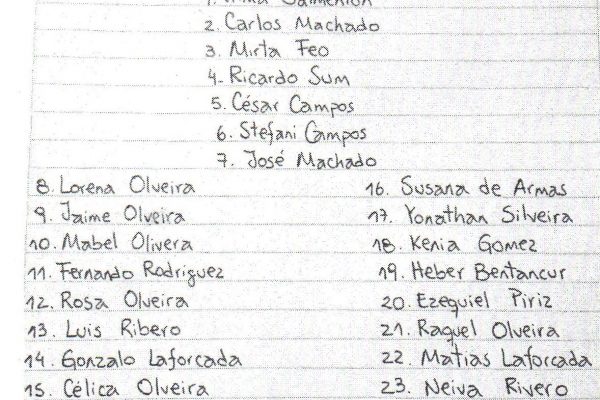 2. Carlos Machado
3. Mirta Feo
4. Ricardo Sum
5. César Campos
6. Stefani Campos
7. José Machado
8. Lorena Olveira
9. Jaime Olveira
10. Mabel Olivera
11. Fernando Rodriguez
12. Rosa Olveira
13. Luis Ribero
14. Gonzalo Laforcada
15. Célica Olveira
16. Susana de Armas
17. Yonathan Silveira
18. Kenia Gomez
19. Heber Bentancur
20. Ezequiel Piriz
21. Raquel Olveira
22. Matias Laforcada
23. Neiva Rivero